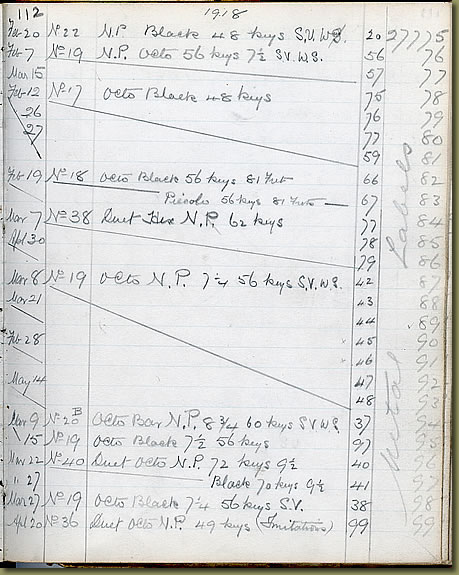 112 1918
Feb 20 No 22 N.P. Black 48 keys S.V.WS. 20 27775
Feb 7 No 19 N.P. Octo 56 keys 7½ S.V.WS. 56 76
Mar 15 57 77
Feb 12 No 17 Octo Black 48 keys 75 78
26 76 79
27 77 80
59 81
Feb 19 No 18 Octo Black 56 keys 81 Frets 66 82
Piccolo 56 keys 81 Frets 67 83
Mar 7 No 38 Duet Hex N.P. 62 keys 77 84
Apl 30 78 85
79 86
Mar 8 No 19 Octo N.P. 7¼ 56 keys S.V.WS. 42 87
Mar 21 43 88
44 89
Feb 28 x 45 90
x 46 91
May 14 47 92
48 93
Mar 9 No 20 B Octo Bar N.P. 8¾ 60 keys SVWS. 37 94
\ 15 No 19 Octo Black 7½ 56 keys 97 95
Mar 22 No 40 Duet Octo N.P. 72 keys 9½ 40 96
" 27 Black 70 keys 9½ 41 97
Mar 27 No 19 Octo Black 7¼ 56 keys S.V. 38 98
Apl 20 No 36 Duet Octo N.P. 49 keys (Imitations) 99 99
Metal Labels